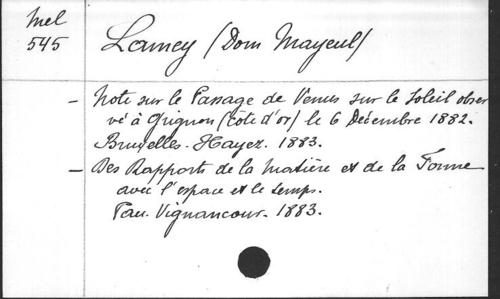 Mel
545
Lamey (Dom Mayeul)
- Note sur le Passage de Venus sur le Soleil obser
vé à Grignon (Côte d'or) le 6 Décembre 1882.
Bruxelles. Hayez. 1883.
- Des Rapports de la Matière et de la Forme
avec l'espace et le temps.
Pau. Vignancour. 1883.